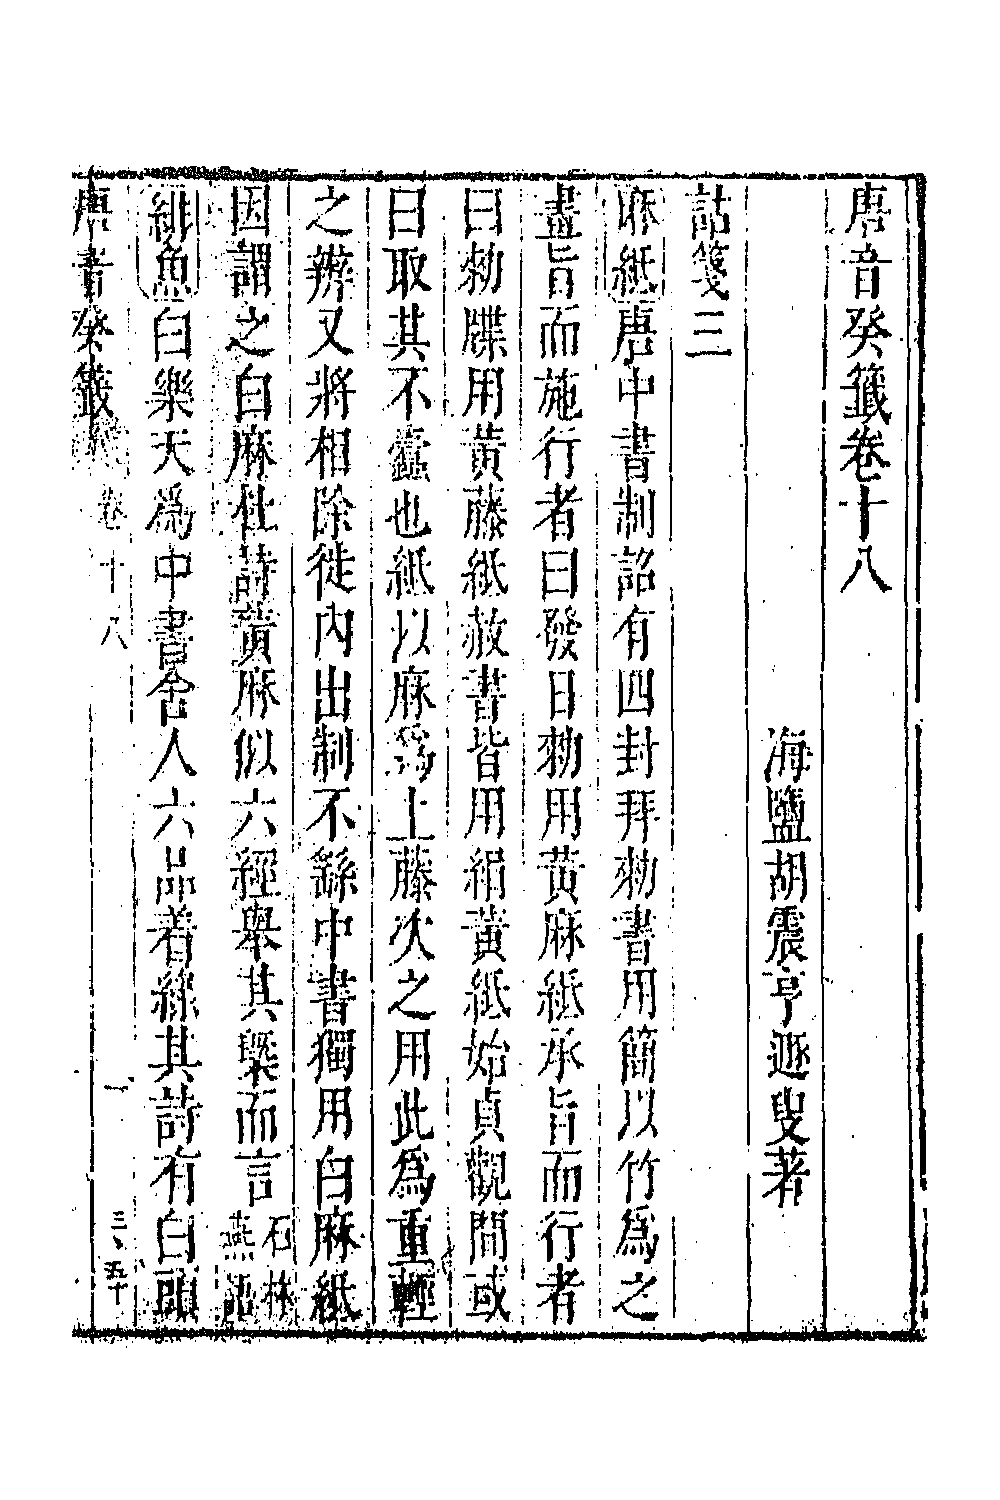 唐音癸籤卷十八
海鹽胡震亨遯叟著
詁箋三
麻紙唐中書制詔有四封拜勅書用簡以竹為之
畫旨而施行者曰發日勅用黃麻紙承旨而行者
曰勅牒用黃藤紙赦書皆用絹黃紙始貞觀間或
曰取其不蠹也紙以麻為上藤次之用此為重輕
之辨又將相除徙內出制不繇中書獨用白麻紙
因謂之白麻杜詩黃麻似六經舉其槩而言石林燕語
緋魚白樂天為中書舍人六品著綠其詩有白頭
唐音癸籤 卷十八 一 三、五十